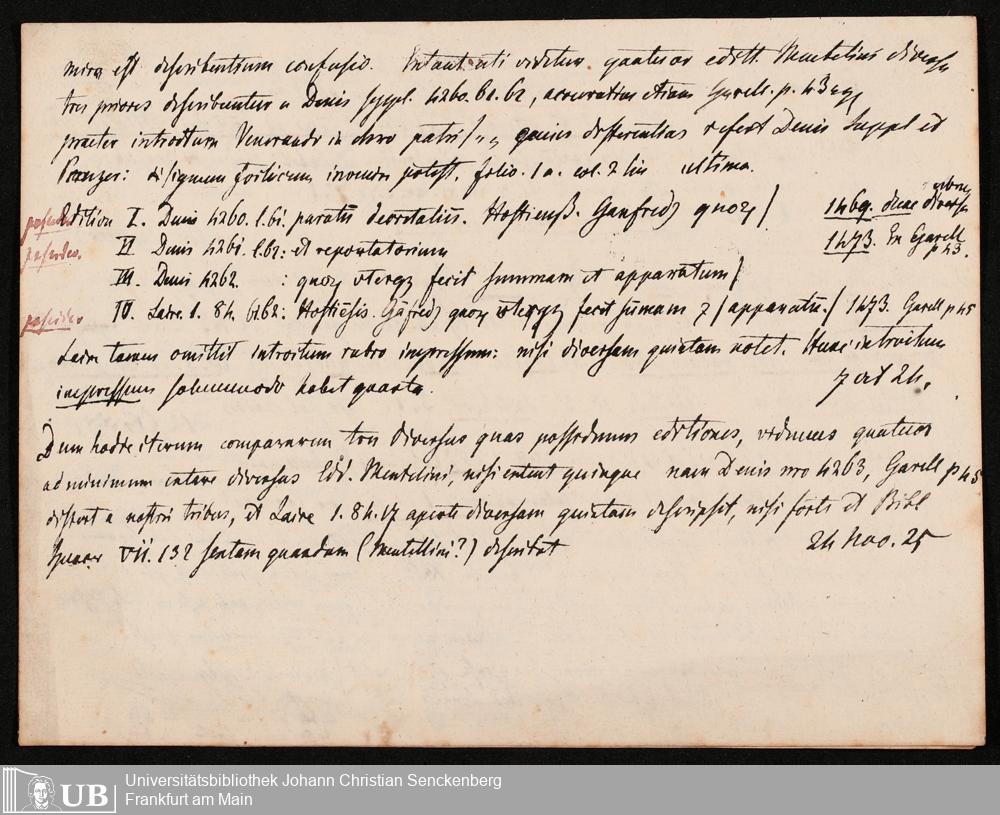 mira est describentium confusio. Extant uti videtur quatuor editt. Mentelini diversae
tres priores describuntur a Denis suppl. 4260. 61. 62, accuratius etiam Garell. p. 43
praeter introitum Venerando in chro patri differentias refert Denis Suppl et
Panzer: folio. 1 a. col. 2 lin ultima.
possideo. Edition I. Denis 4260. l. 61. paratus decretalium. Hostienss. Ganfredq quorq / 1469. duae diversae
possideo. II Denis 4261. l. 62: et reportatorium 1473. In Garell p 43.
III. Denis 4262. : quorq vterqz fecit summam et apparatum /
possideo IV. Laire. 1. 84. 61.62: Hostiēsis. Gāfredq quorq vterqz fecit sūmam z / apparatū. / 1473 Garell p 45
Laire tamen omittit introitum rubro impressum: nisi diversam quintam notet. Hunc introitum
impressum solummodo habet quarta. 7 oct 24.
Dum hodie iterum compararem tres diversas quas possedimus editiones, videmus quatuor
ad minimum extare diversas Edd. Mentelini, nisi extent quinque nam Denis nro 4263, Garell p 45
differt a nostris tribus, et Laire 1. 84. 17 aperte diversam quintam descripsit, nisi forte et Bibl
Spencer VII. 132 sextam quandam (Mentellini?) describat 24 Nov. 25
UB Universitätsbibliothek Johann Christian Senckenberg
Frankfurt am Main